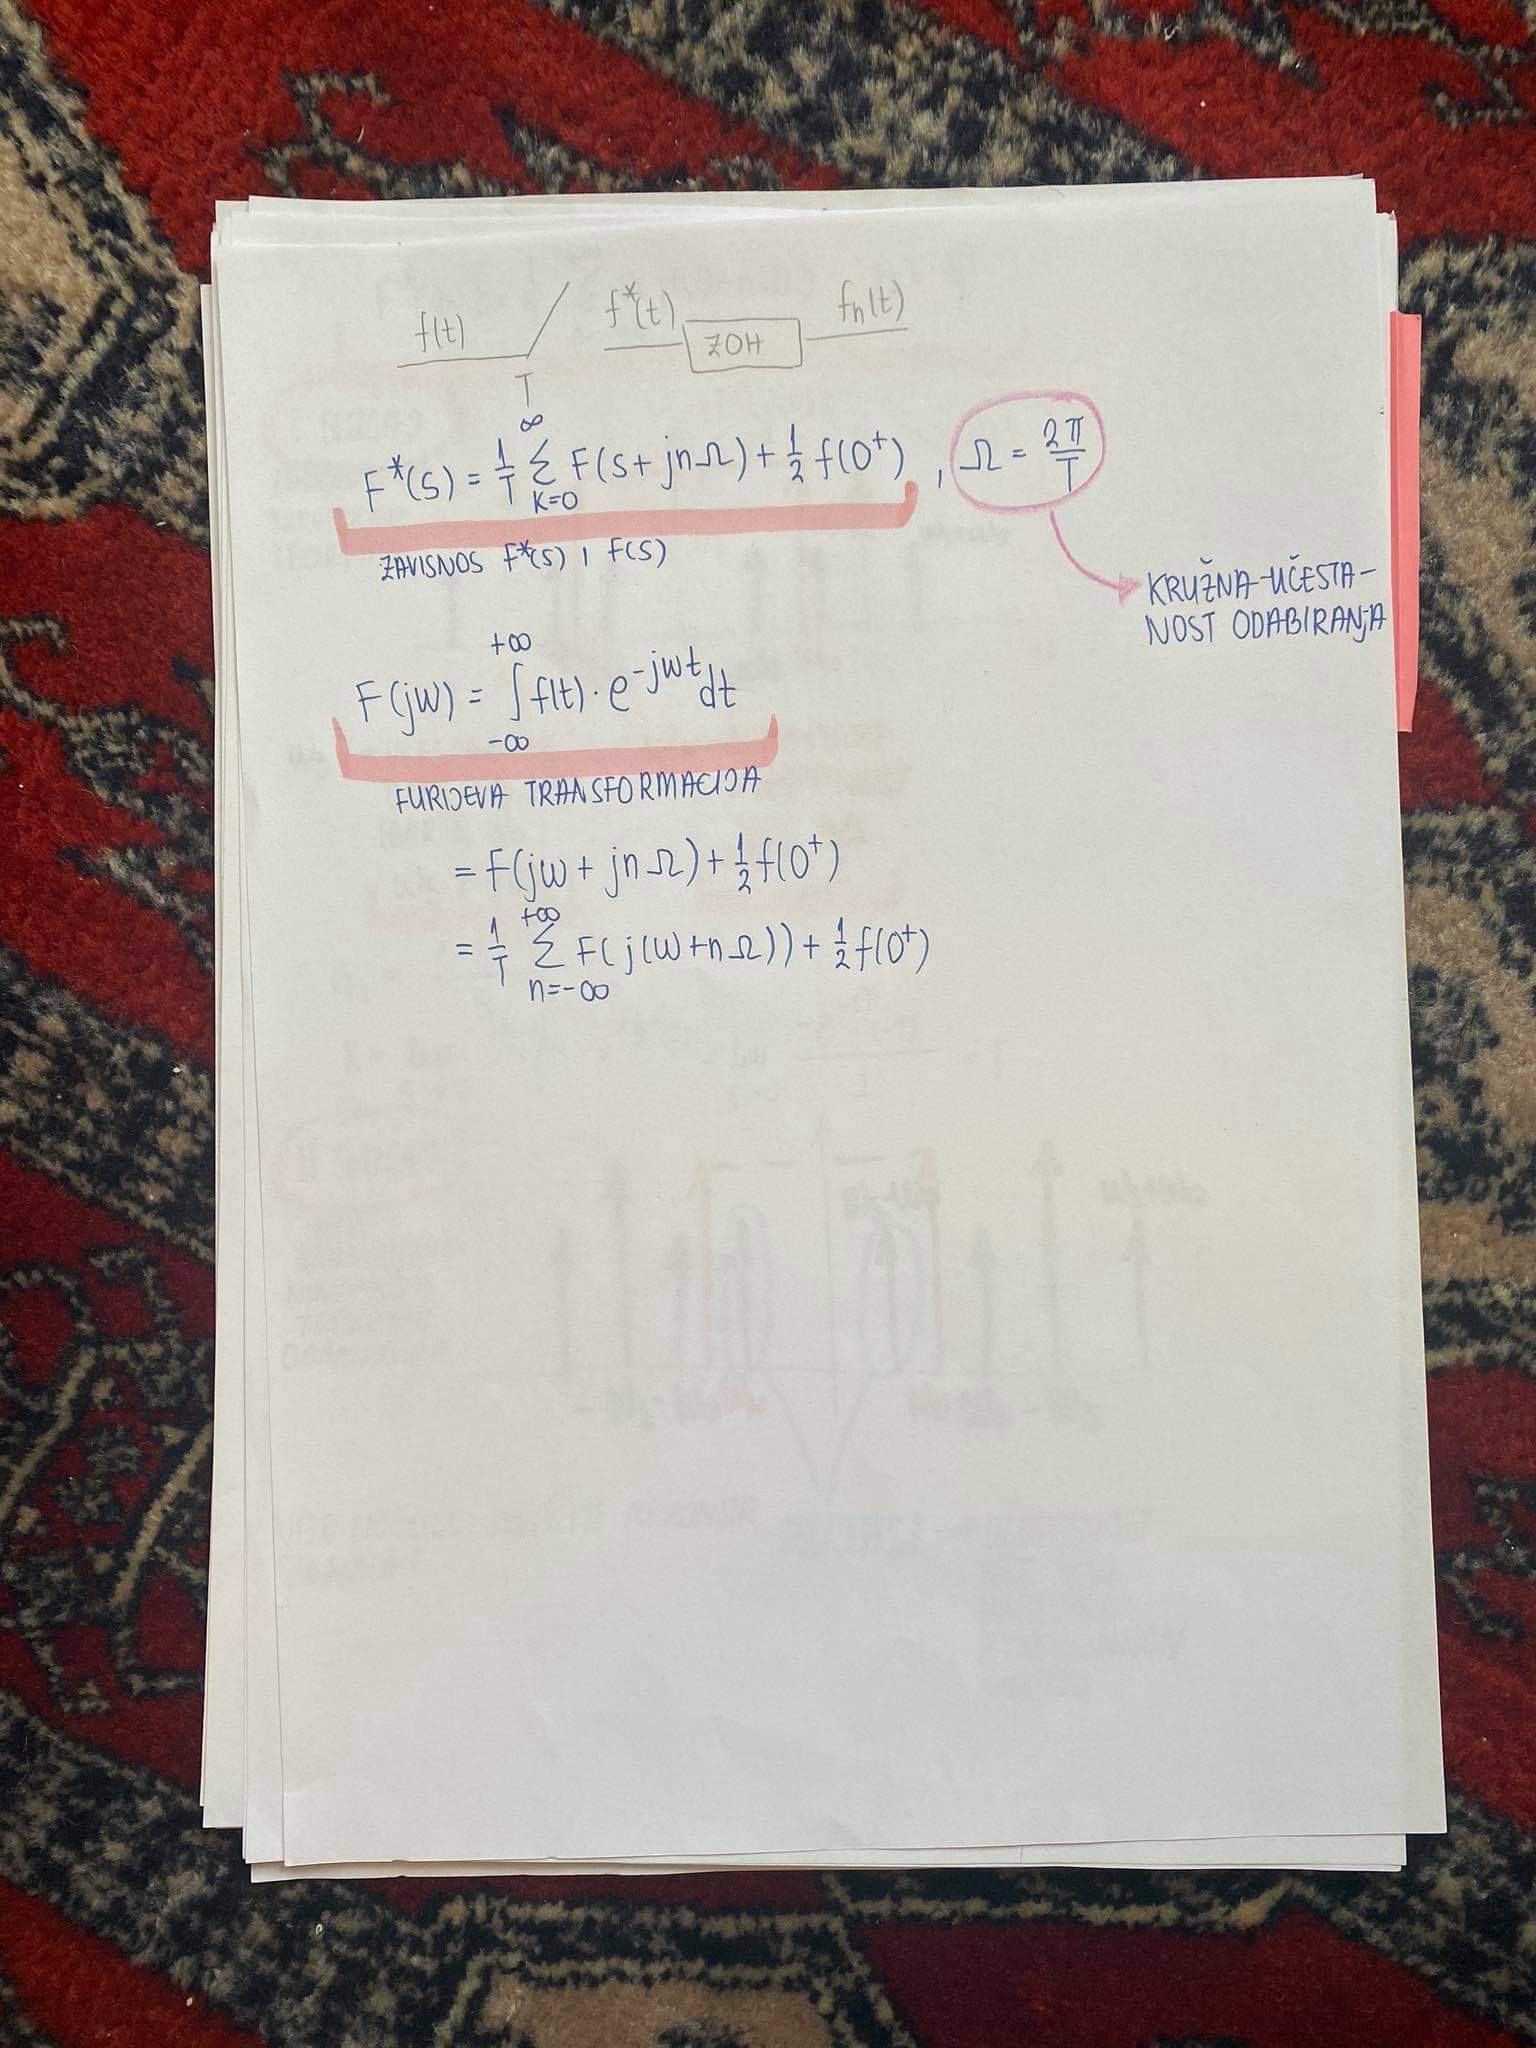 f(t) f*(t) ZOH fh(t)
T
F*(S) = 1/T ∞Σk=0 F(S + jnΩ) + 1/2 f(0+) , Ω = 2π/T
ZAVISNOS F*(S) I F(S)
KRUŽNA-UČESTA-
NOST ODABIRANJA
F(jw) = +∞∫-∞ f(t) · e^-jwt dt
FURIJEVA TRANSFORMACIJA
= F(jw + jnΩ) + 1/2 f(0+)
= 1/T +∞Σn=-∞ F(j(w+nΩ)) + 1/2 f(0+)